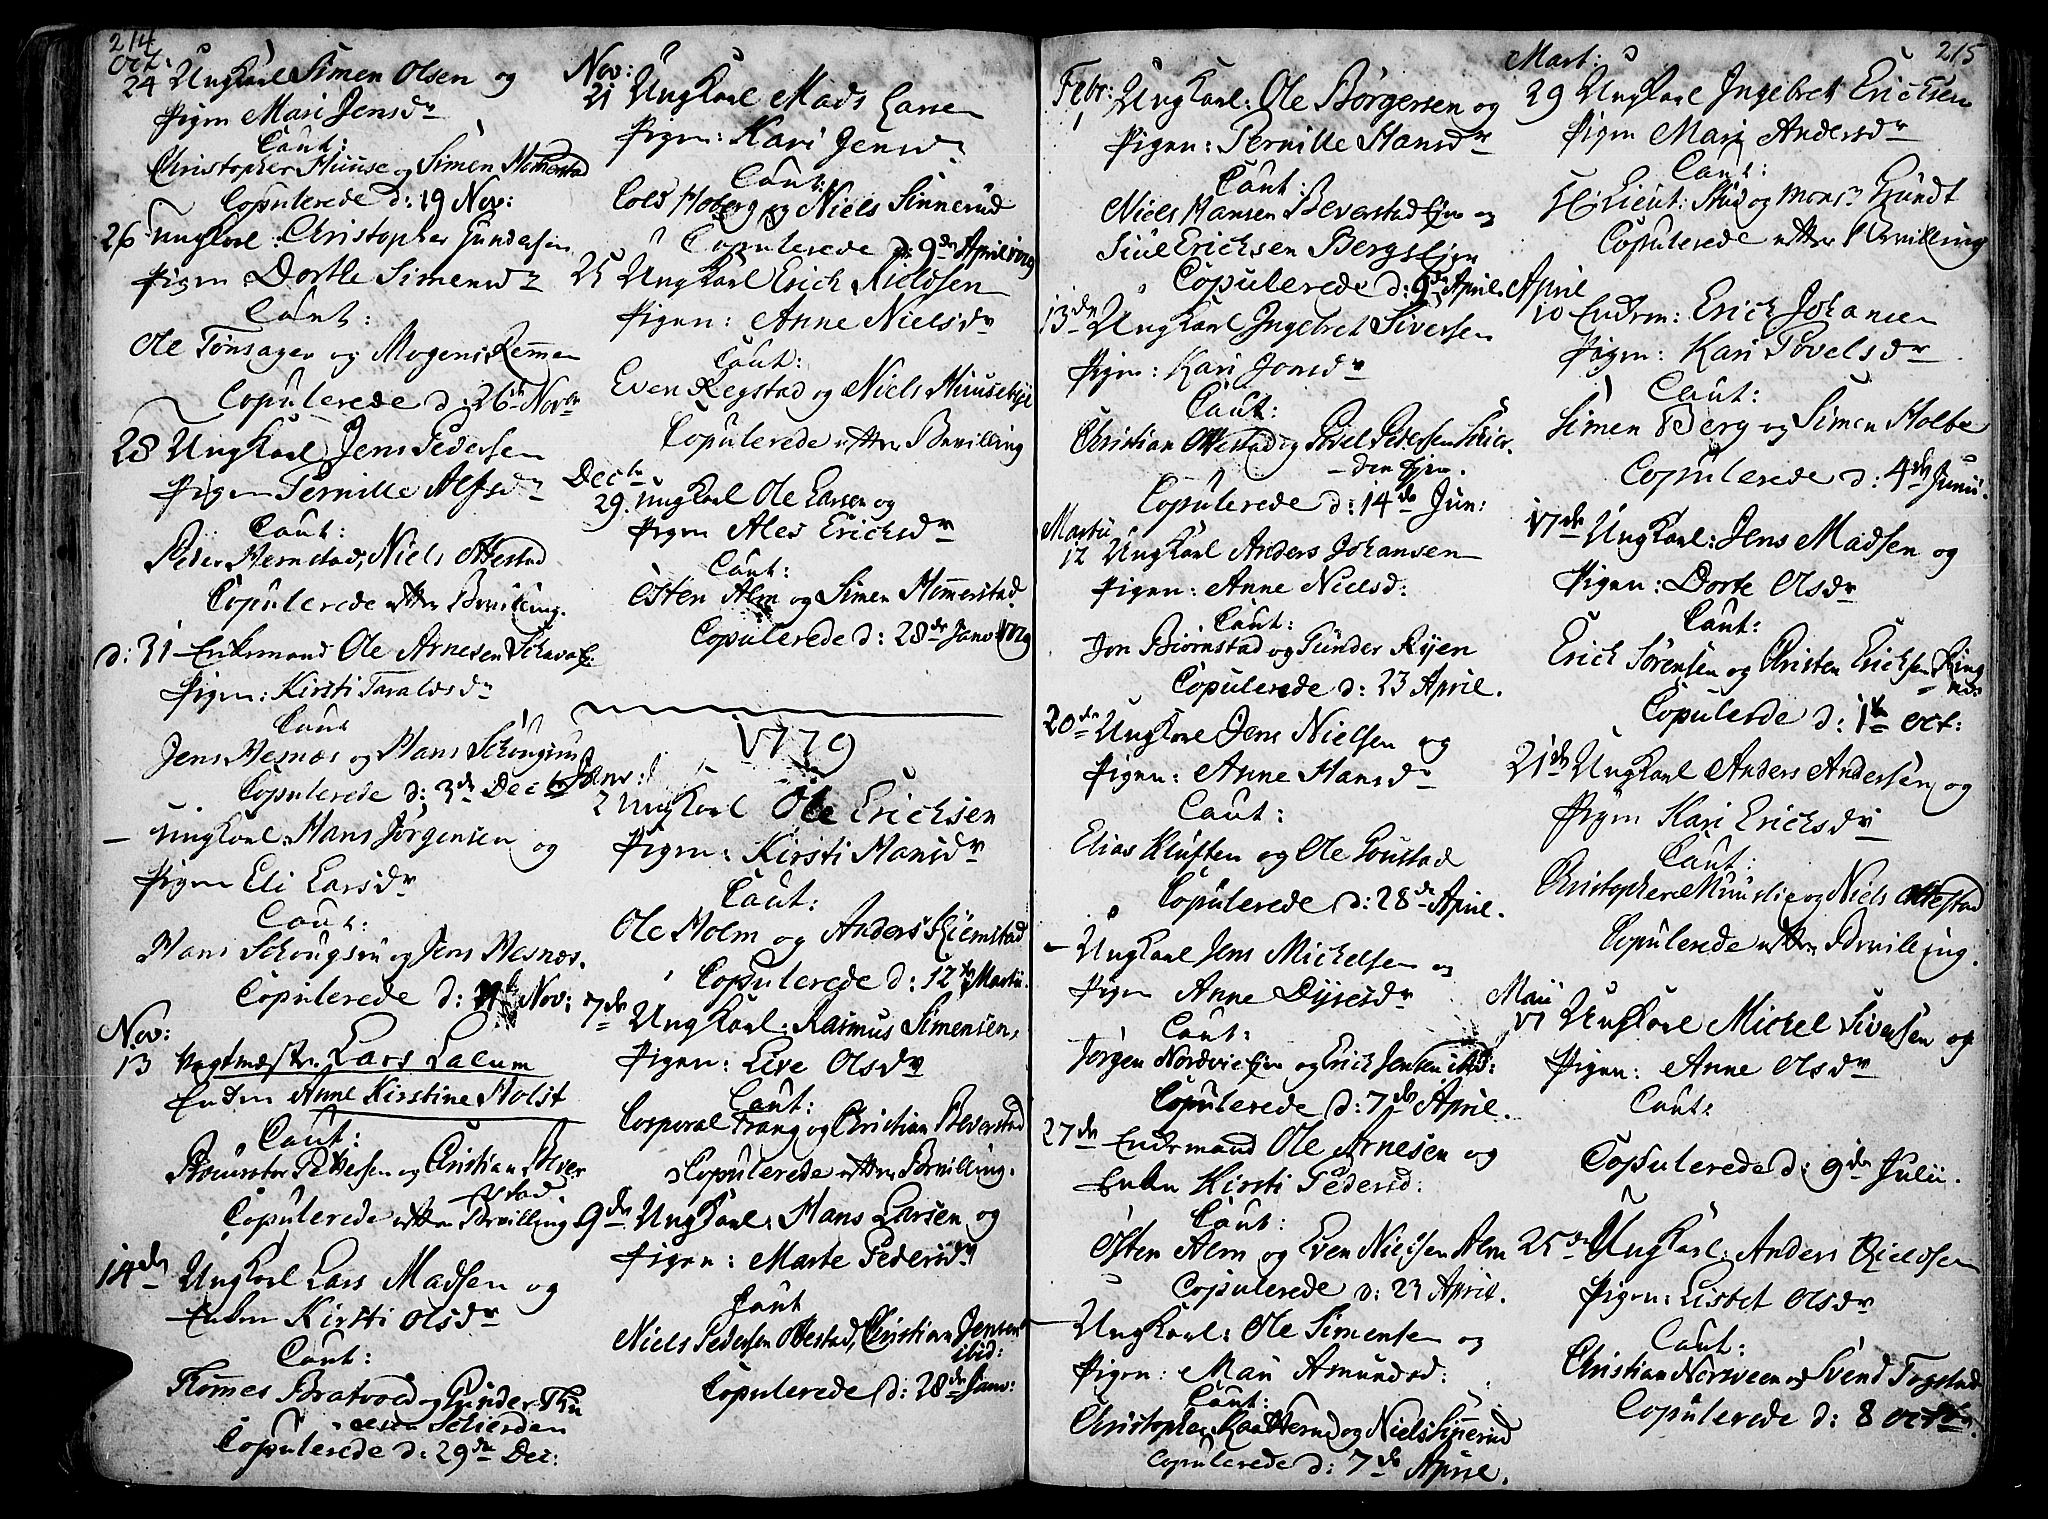 214
Oct:
24 Ungkarl Simen Olsen og
Pigen Mari Jensdr
Caut:
Christopher Huuse og Simen Hommerstad
Copulerede d: 19 Nov:
26 Ungkarl: Christopher Gundersen
Pigen Dortle Simensdr
Caut:
Ole Tønsager og Mogens Remmen
Copulerede d: 26de Novbr
28 Ungkarl Jens Pedersen
Pigen Pernille Alfsdr
Caut:
Peder Hernstad, Niels Ottestad
Copulerede efter Bevilling.
d: 31 Enkemand Ole Arnesen
Pigen: Kirsti Taraldsdr
Caut
Jens Hesnæs og Hans Schougrud
Copulerede d: 3de Decbr
– Ungkarl: Hans Jørgensen og
Pigen Eli Larsdr
Caut:
Hans Schougrud og Jens Hesnæs.
Copulerede d: Nov:
Nov:
13 Vagtmæstr. Lars Lalum
Enken Anne Kirstine Holst
Caut:
Procurator Pettersen og Christian Bever
stad
Copulerede efter Bevilling
14de Ungkarl Lars Madsen og
Enken Kirsti Olsdr
Caut:
Tommes Bratvold og Gunder
Schierden
Copulerede d: 29de Dec:
Nov:
21 Ungkarl Mads Larsen
Pigen: Kari Jensdr
Caut:
Hoberg og Niels Sinnerud
Copulerede d: 9de April 1779
25 Ungkarl Erich Kieldsen
Pigen: Anne Nielsdr
Caut:
Even Regstad og Niels Huuseby
Copulerede efter Bevilling
Decbr
29. Ungkarl Ole Larsen og
Pigen Ales Erichsdr
Caut:
Østen Alm og Simen Hommerstad
Copulerede d: 28de Janv: 1779
1779
Janv:
2 Ungkarl Ole Erichsen
Pigen: Kirsti Hansdr
Caut:
Ole Holm og Anders Kiemstad
Copulerede d: 12te Martii.
7de Ungkarl: Rasmus Simensen,
Pigen: Live Olsdr
Caut:
Corporal Frang og Christian Beverstad
Copulerede efter Bevilling.
9de Ungkarl: Hans Larsen og
Pigen: Marte Pedersdr
Caut
Niels Pedersen Ottestad, Christian Jensen
ibid:
Copulerede d: 28de Janv:
215
Febr:
1 Ungkarl: Ole Børgersen og
Pigen: Pernille Hansdr
Caut:
Niels Hansen Beverstad Ejer og
Siul Erichsen Bergs Ejer
Copulerede d: 9de April.
13de Ungkarl Ingebret Siversen
Pigen: Kari Jonsdr
Caut:
Christian Ottestad og Povel Pedersen Schier-
den Ejer.
Copulerede d: 14de Jun:
Martii
12 Ungkarl Anders Johansen
Pigen: Anne Nielsd:
Caut:
Jon Biørnstad og Gunder Ryen
Copulerede d: 23 April.
20de Ungkarl Jens Nielsen og
Pigen: Anne Hansdr
Caut:
Elias Kluften og Ole Goustad
Copulerede d: 28de April.
– Ungkarl Jens Michelsen og
Pigen Anne Dyresdr
Caut:
Jørgen Nordvie Ejer og Erich Jensen ibid:
Copulerede d: 7de April.
27de Enkemand Ole Arnesen og
Enken Kirsti Pedersd:
Caut:
Østen Alm og Even Nielsen Alm
Copulerede d: 23 April.
– Ungkarl: Ole Simensen og
Pigen: Mari Amundsd:
Caut:
Christopher Kaatterud og Niels Sinnerud
Copulerede d: 7de April.
Mart:
29 Ungkarl Ingebret Erichsen
Pigen Mari Andersdr
Caut:
Hr: Lieut: Stud og Monsr Gundt
Copulerede efter Bevilling
April
10 Enkem: Erich Johansen
Pigen: Kari Povelsdr
Caut:
Simen Berg og Simen Holbe
Copulerede d: 4de Junii.
17de Ungkarl: Jens Madsen og
Pigen: Dorte Olsdr
Caut:
Erich Sørensen og Christen Erichsen Ring
nes
Copulerede d: 1te Oct:
21de Ungkarl Anders Andersen og
Pigen Kari Erichsdr
Caut:
Christopher og Niels Ottestad
Copulerede efter Bevilling.
Maii
17 Ungkarl Michel Siversen og
Pigen: Anne Olsdr
Caut:
Copulerede d: 9de Julii.
25de Ungkarl: Anders Kieldsen
Pigen: Lisbet Olsdr
Caut:
Christian Norsveen og Svend Fogstad
Copulerede d: 8 Octbr.